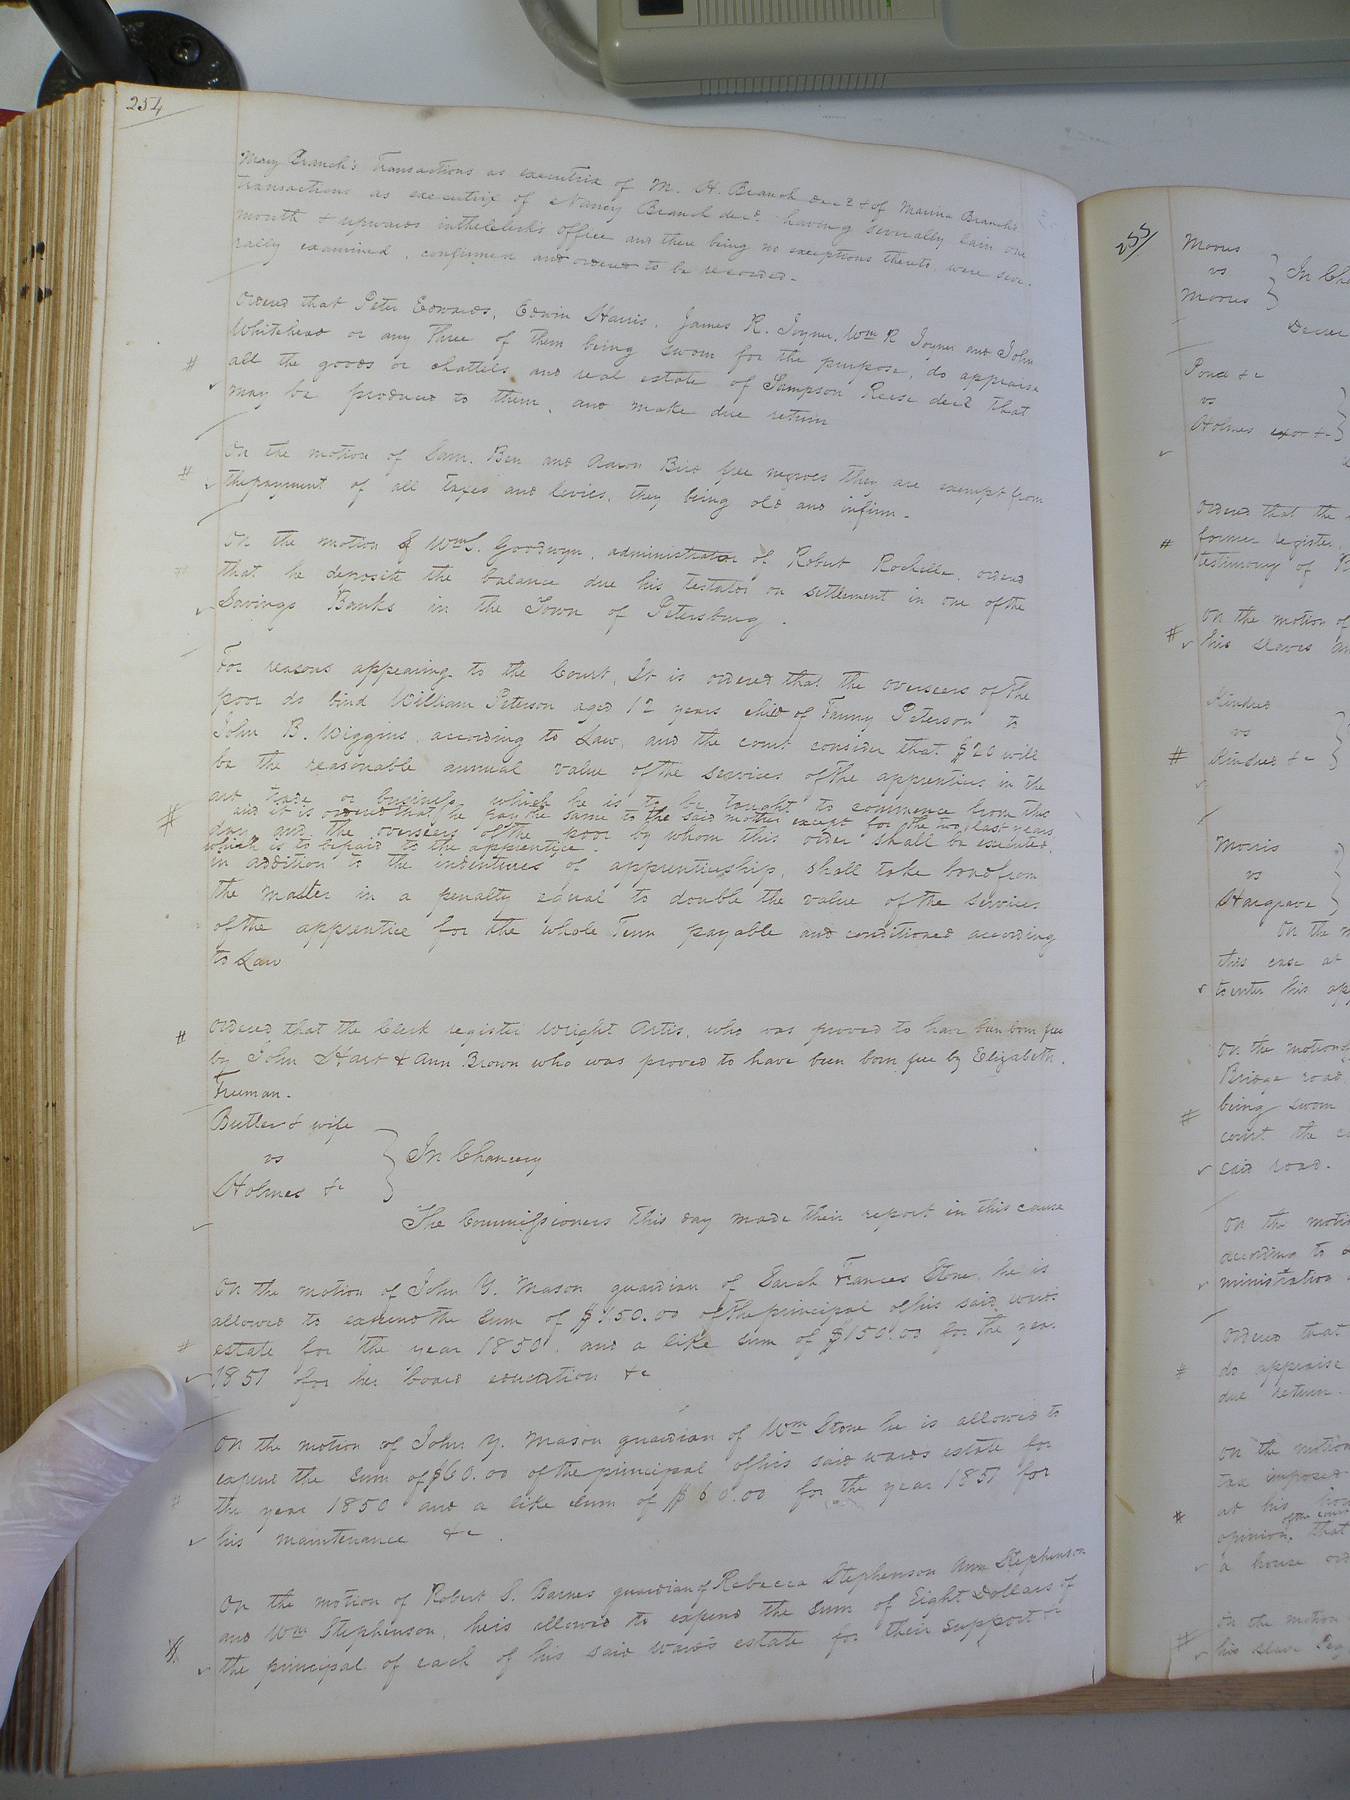 254
Mary Branch's Transactions as executrix of M. H. Branch decd & of Marina Branch's
transactions as executrix of Nancy Branch decd having severally lain one
month & upwards in the clerk's office and there being no exceptions thereto, were seve-
rally examined, confirmed and ordered to be recorded.
Ordered that Peter Edwards, Edwin Harris, James R. Joyner, Wm R Joyner and John
Whitehead or any three of them being sworn for the purpose, do appraise
all the goods or chattels, and real estate of Sampson Reese decd that
may be produced to them, and make due return
On the motion of Sam, Ben and Aaron Bird free negroes they are exempt from
the payment of all taxes and levies, they being old and infirm.
On the motion of Wm S. Goodwyn, administrator of Robert Rochelle, ordered
that he deposite the balance due his testator on settlement in one of the
Savings Banks in the Town of Petersburg.
For reasons appearing to the Court, It is ordered that the overseers of the
poor do bind William Peterson aged 12 years child of Fanny Peterson to
John B. Wiggins, according to Law, and the court consider that $20 will
be the reasonable annual value of the services of the apprentice in the
art trade or business which he is to be taught to commence from this
and it is ordered that he pay the same to the said mother except for the two last years
day and the overseers of the poor by whom this order shall be executed,
which is to be paid to the apprentice.
in addition to the indentures of apprenticeship, shall take bond from
the master in a penalty equal to double the value of the services
of the apprentice for the whole Term payable and conditioned according
to Law
Ordered that the Clerk register Wright Artis, who was proved to have been born free
by John Hart & Ann Brown who was proved to have been born free by Elizabeth
Freeman.
Butler & wife
vs
Holmes &c
In Chancery
The Commissioners this day made their report in this cause
On the motion of John Y. Mason guardian of Sarah Frances Stone, he is
allowed to expend the sum of $150.00 of the principal of his said ward's
estate for the year 1850, and a like sum of $150.00 for the year
1851 for her board education &c
On the motion of John Y. Mason guardian of Wm Stone he is allowed to
expend the sum of $60.00 of the principal of his said wards estate for
the year 1850 and a like sum of $60.00 for the year 1851 for
his maintenance &c.
On the motion of Robert S. Barnes guardian of Rebecca Stephenson Ann Stephenson
and Wm Stephenson, he is allowed to expend the sum of Eight Dollars of
the principal of each of his said ward's estate for their support &c
255
Moores
vs
Moores
In Cha
Decree
&c
vs
Holmes exor &c
Ordered that the
former register,
testimony of
On the motion of
his slaves
Kindred
vs
Kindred &c
Morris
vs
Hargrave
On the
this case at
to enter his app
On the motion
Bridge road
being sworn
court the
said road.
On the moti
according to
ministration
Ordered that
do appraise
due return.
On the motion
tax imposed
at his hou
of the court
opinion, that
a house
On the motion
his slave Peg